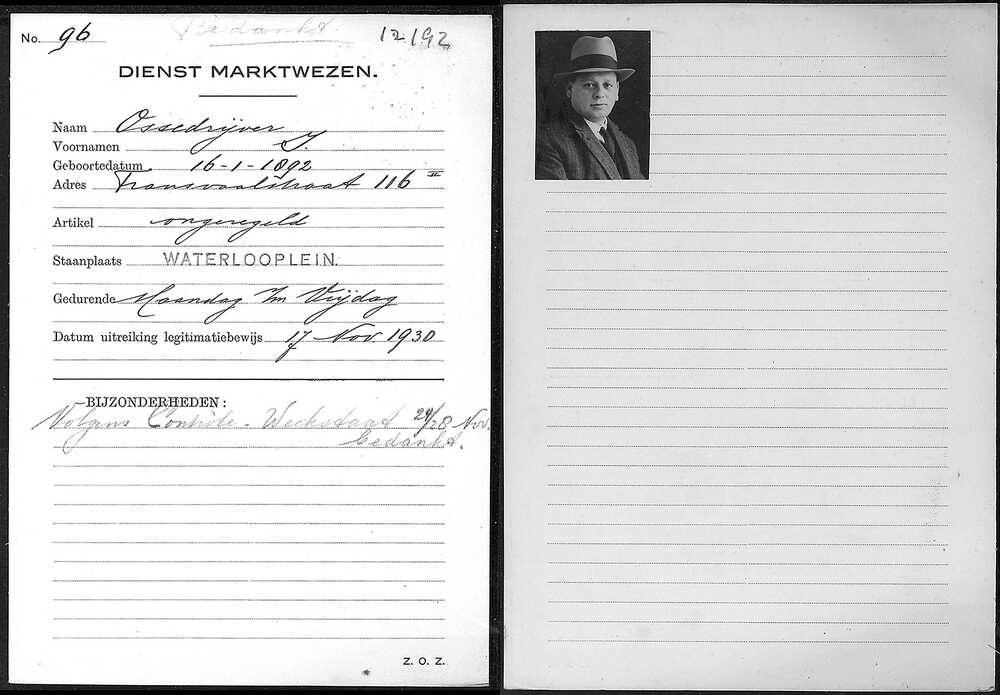 No. 96 Bedankt. 12192
DIENST MARKTWEZEN.
Naam Ossedrijver
Voornamen I.
Geboortedatum 16-1-1892
Adres Transvaalstraat 116 II
Artikel ongeregeld
Staanplaats WATERLOOPLEIN.
Gedurende Maandag t/m Vrijdag
Datum uitreiking legitimatiebewijs 17 Nov. 1930
BIJZONDERHEDEN:
Volgens Controle-Weekstaat 24/28 Nov.
bedankt.
Z. O. Z.